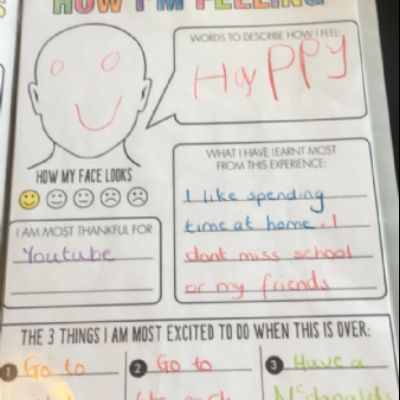 HOW I'M FEELING
WORDS TO DESCRIBE HOW I FEEL:
Happy
HOW MY FACE LOOKS
WHAT I HAVE LEARNT MOST
FROM THIS EXPERIENCE:
I like spending
time at home. I
dont miss school
or my friends
I AM MOST THANKFUL FOR
Youtube
THE 3 THINGS I AM MOST EXCITED TO DO WHEN THIS IS OVER:
1 Go to
2 Go to
3 Have a
McDonalds